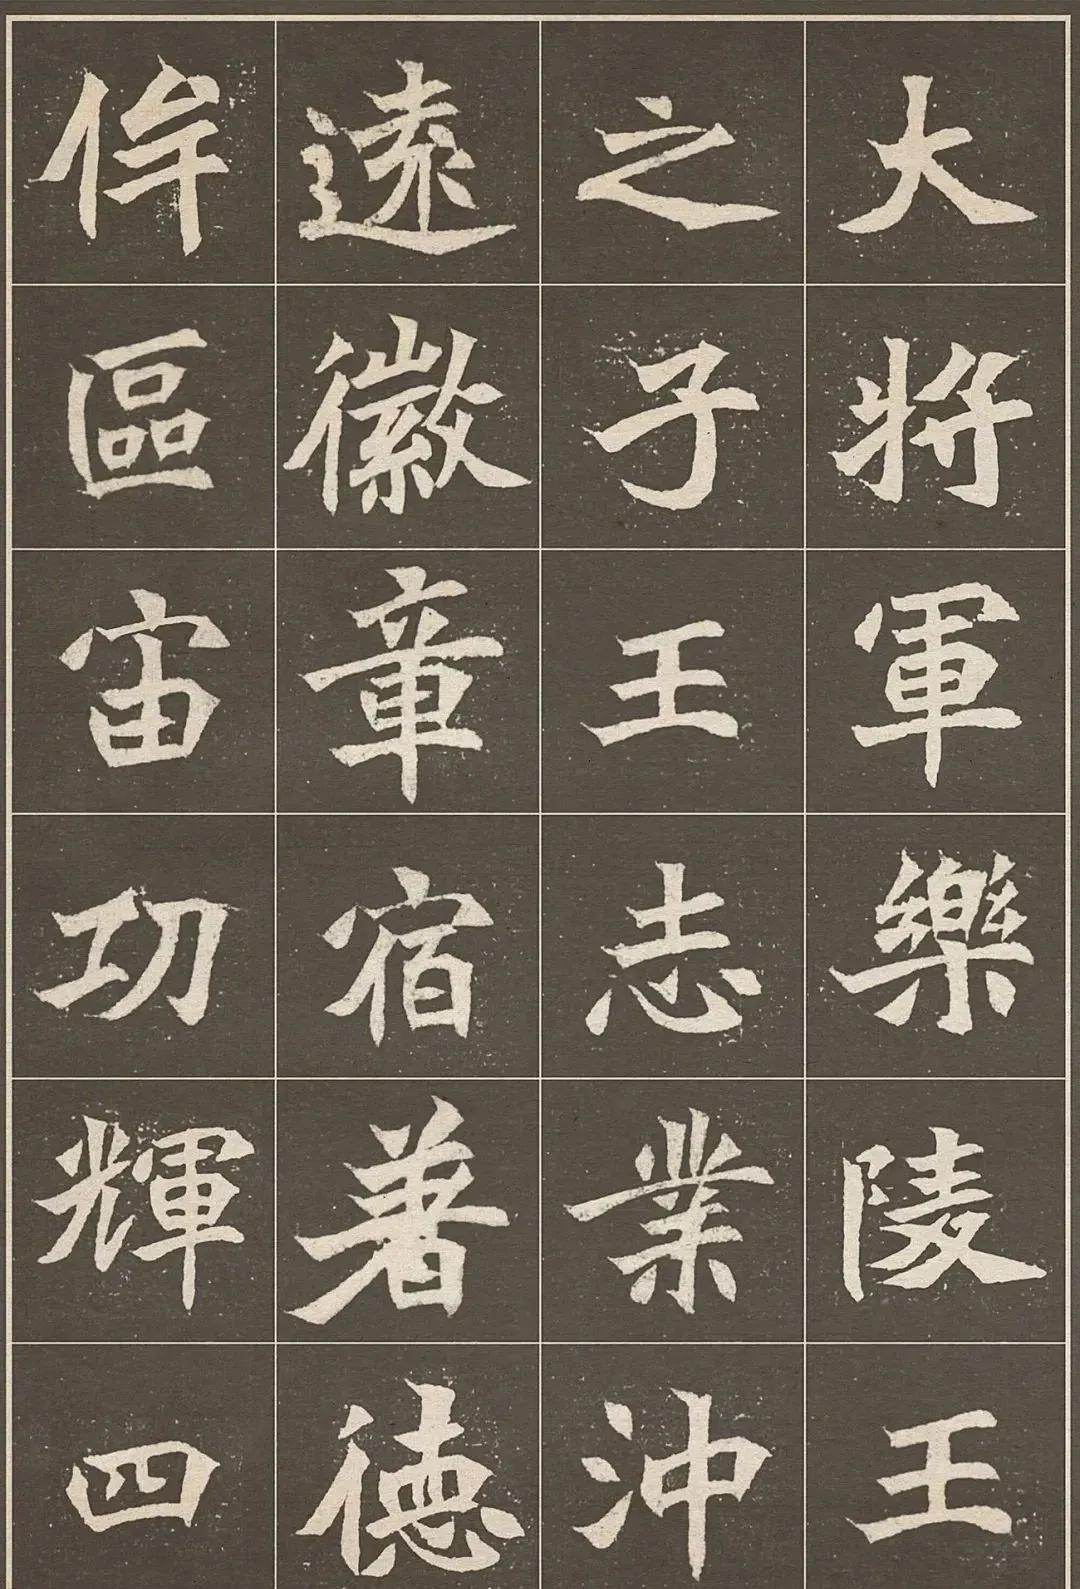 大將軍樂陵王
之子王志業沖
遠徽章宿著德
侔區宙功輝四